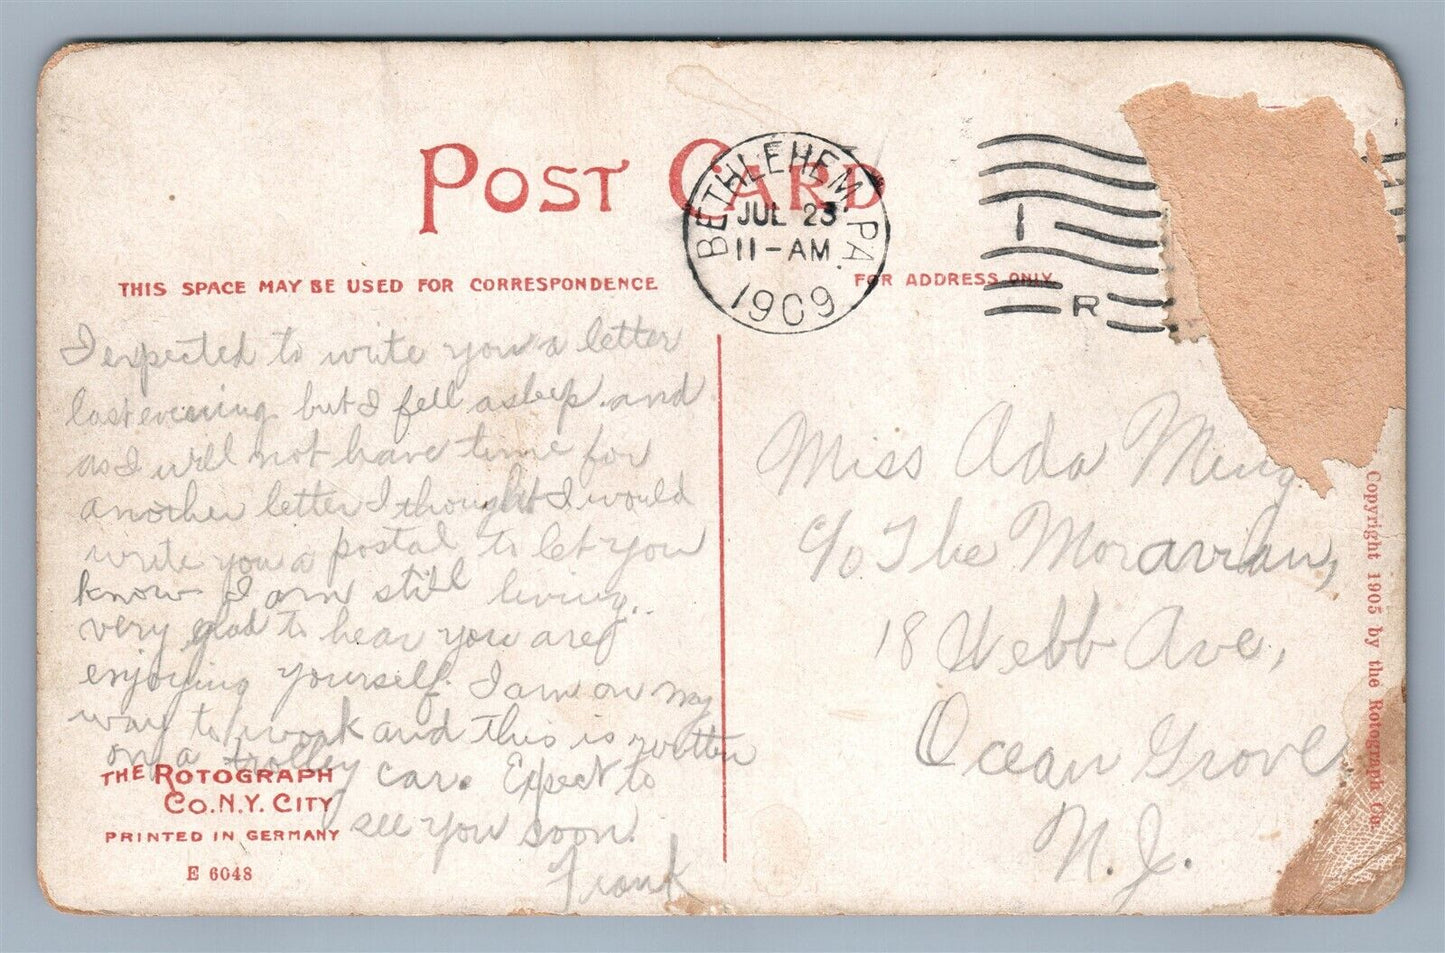 POST CARD
BETHLEHEM, PA.
JUL 23
11-AM
1909
I
R
THIS SPACE MAY BE USED FOR CORRESPONDENCE
FOR ADDRESS ONLY
I expected to write you a letter
last evening but I fell asleep and
as I will not have time for
another letter I thought I would
write you a postal to let you
know I am still living.
very glad to hear you are
enjoying yourself. I am on my
way to work and this is written
on a trolley car. Expect to
see you soon.
Frank
THE ROTOGRAPH
CO. N.Y. CITY
PRINTED IN GERMANY
E 6048
Miss Ada
c/o The Moravian,
18 Webb Ave,
Ocean Grove
N.J.
Copyright 1905 by the Rotograph Co.